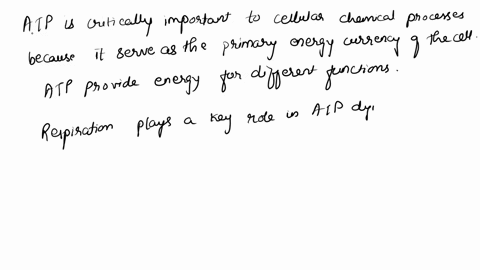 ATP is critically important to cellular chemical processes
because it serve as the primary energy currency of the cell.
ATP provide energy for different functions.
Respiration plays a key role in ATP dy